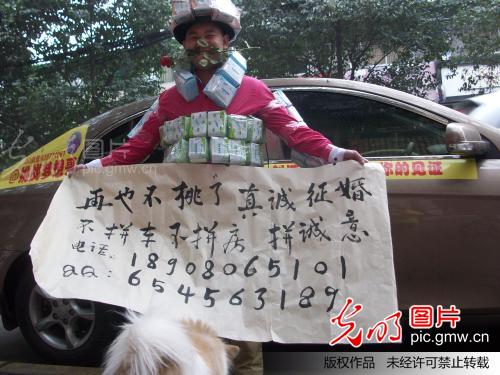 再也不挑了 真诚征婚
不拼车不拼房 拼诚意
电话: 18908065101
QQ: 654563189
的见证
光明图片
pic.gmw.cn
版权作品 未经许可禁止转载